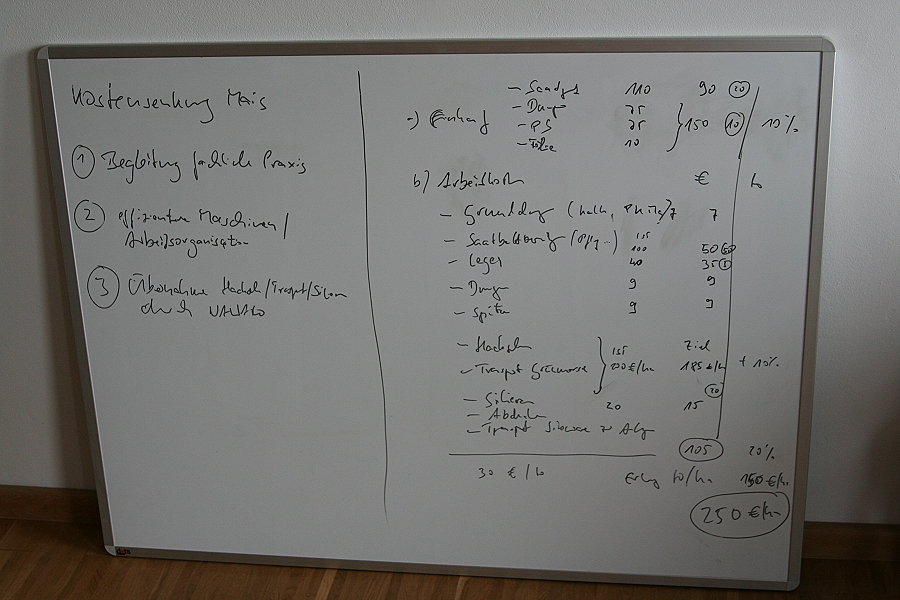 Kostensenkung Mais
1 Begleitung fachliche Praxis
2 effizientere Maschinen/
Arbeitsorganisation
3 Übernahme Häcksln/Transpt/Silieren
durch NAWARO
– Saatgut 110 90 20
a) Einkauf – Dung 75
– PS 25 150 10 10%
– Folie 10
b) Arbeitskosten € to
– Grunddung (Kalk, PK Mg) 7 7
– Saatbettbereitung 100 50
– Legen 40 35 5
– Dung 9 9
– Spritzen 9 9
– Häckseln Ziel
– Transpt Grünmasse 200 €/ha 185 €/ha + 10%
20
– Silieren 20 15
– Abdecken
– Transpt Silomasse zu
105 20%
30 €/to Ertrag to/ha 150 €/ha
250 €/ha